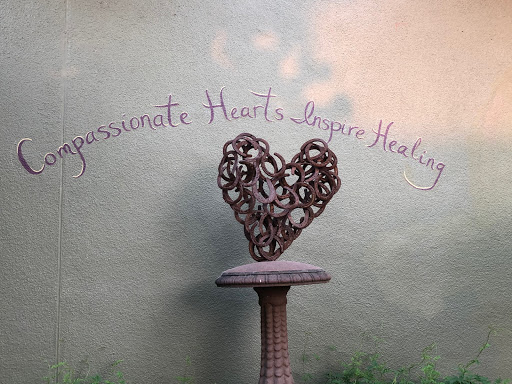 Compassionate Hearts Inspire Healing